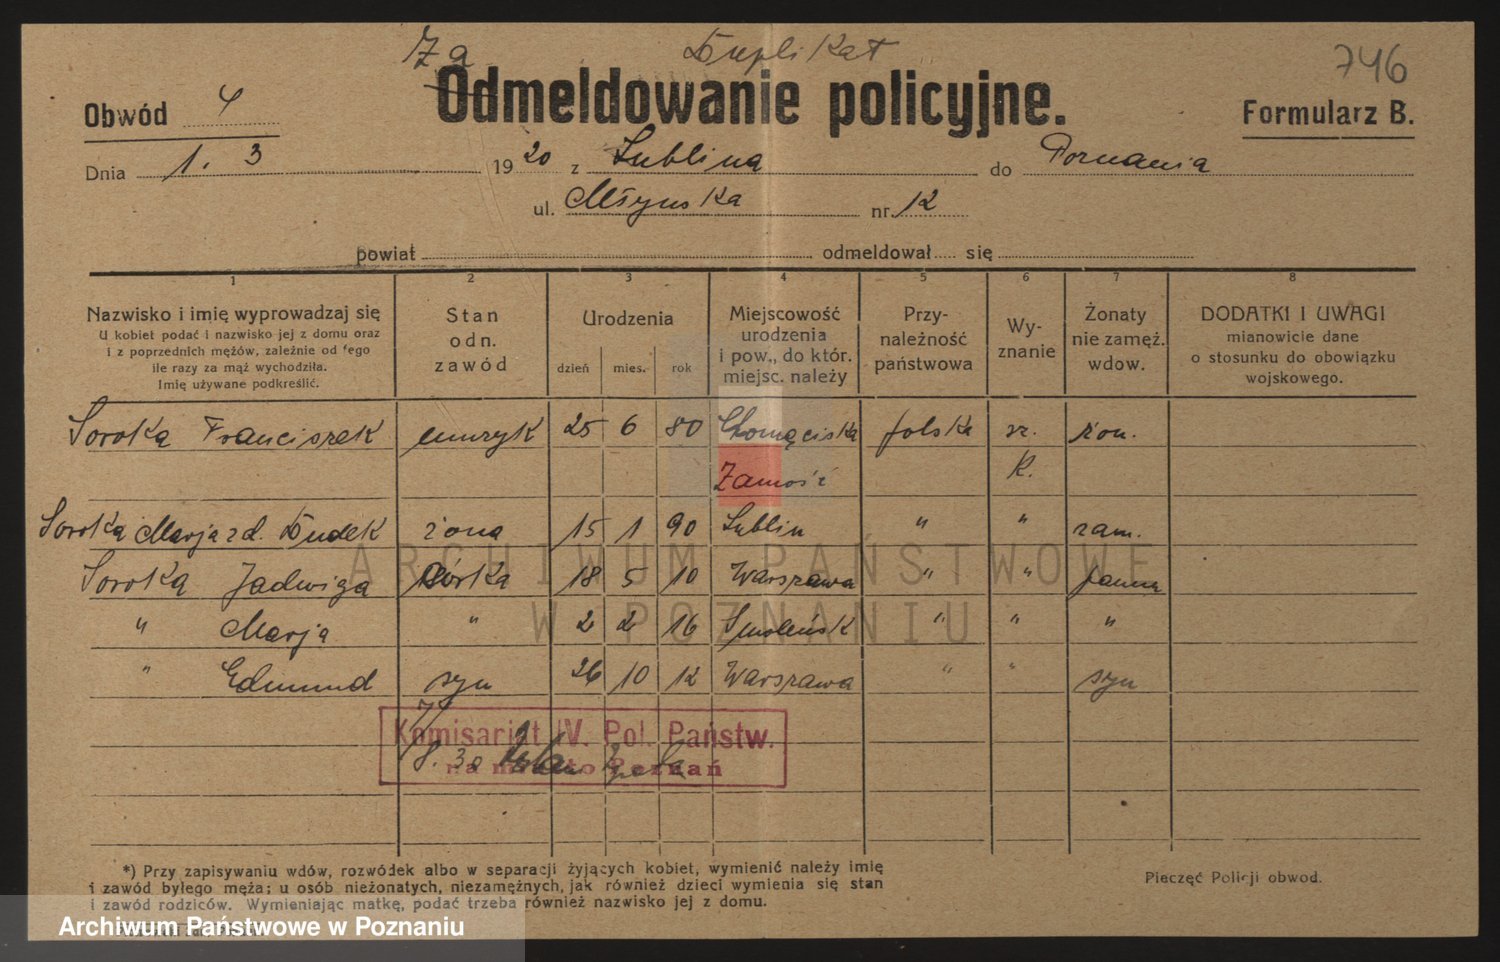 Za Duplikat
746
Odmeldowanie policyjne.
Obwód 4
Formularz B.
Dnia 1. 3 1920 z Lublina do Poznania
ul. Młynska nr. 12
powiat odmeldował się
1 2 3 4 5 6 7 8
Nazwisko i imię wyprowadzaj się
U kobiet podać i nazwisko jej z domu oraz
i z poprzednich mężów, zależnie od tego
ile razy za mąż wychodziła.
Imię używane podkreślić.
Stan
odn.
zawód
Urodzenia
dzień mies. rok
Miejscowość
urodzenia
i pow., do któr.
miejsc. należy
Przy-
należność
państwowa
Wy-
znanie
Żonaty
nie zamęż.
wdow.
DODATKI I UWAGI
mianowicie dane
o stosunku do obowiązku
wojskowego.
Soroka Franciszek 25 6 80 polska rz. żon.
Zamość K.
Soroka Marja z d. Dudek żona 15 1 90 Lublin " " zam.
Soroka Jadwiga Córka 18 5 10 Warszawa " " panna
" Marja " 2 2 16 Smoleńsk " " "
" Edmund syn 26 10 12 Warszawa " " syn
Komisariat IV. Pol. Państw.
na miasto Poznań
ARCHIWUM PAŃSTWOWE
W POZNANIU
*) Przy zapisywaniu wdów, rozwódek albo w separacji żyjących kobiet, wymienić należy imię
i zawód byłego męża; u osób nieżonatych, niezamężnych, jak również dzieci wymienia się stan
i zawód rodziców. Wymieniając matkę, podać trzeba również nazwisko jej z domu.
Pieczęć Policji obwod.
Archiwum Państwowe w Poznaniu